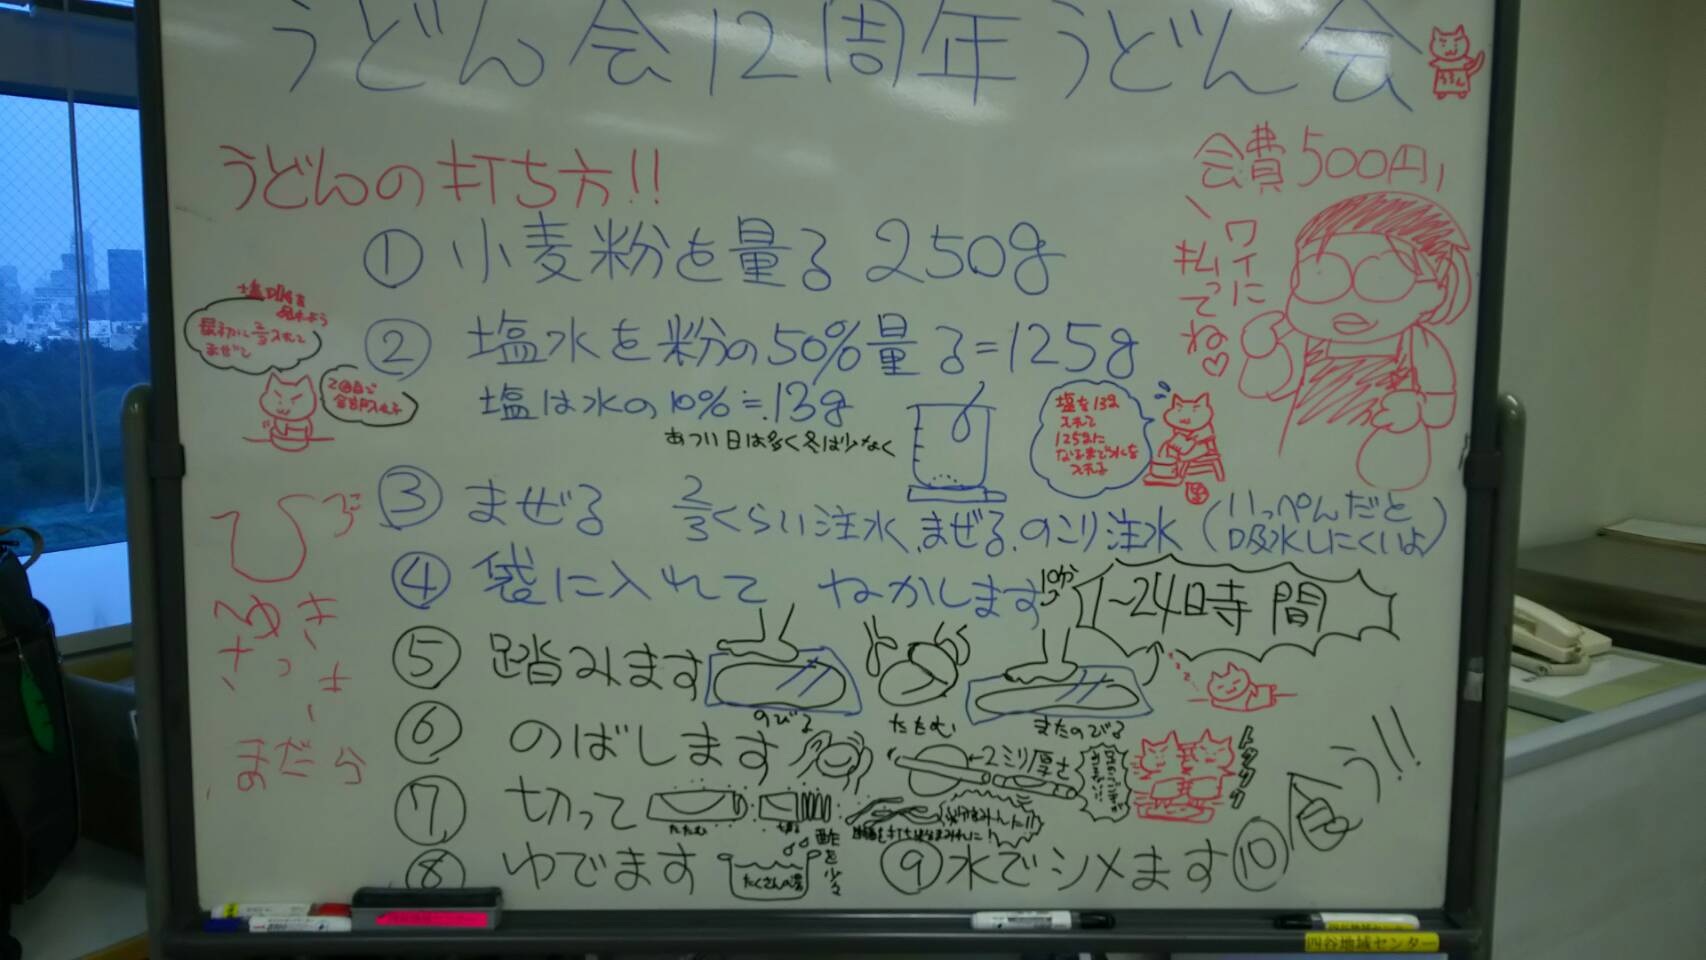 うどん会12周年うどん会
うどん
うどんの打ち方!!
会費500円
ワイに
払って
ね♡
①小麦粉を量る 250g
②塩水を粉の50%量る=125g
塩は水の10%≒13g
あつい日は多く冬は少なく
塩を13g
入れて
125gに
なるまで水を
入れる
最初に2/3入れて
まぜて
2回目で
③まぜる 2/3くらい注水、まぜる、のこり注水(いっぺんだと
吸水しにくいよ)
④袋に入れて ねかします 1~24時間
⑤踏みます
のびる
たたむ
またのびる
⑥のばします
←2ミリ厚さ
⑦切って
たたむ
切る
⑧ゆでます
たくさんの湯
酢を少々
⑨水でシメます
⑩食う!!
ひび
まだら
四谷地域センター